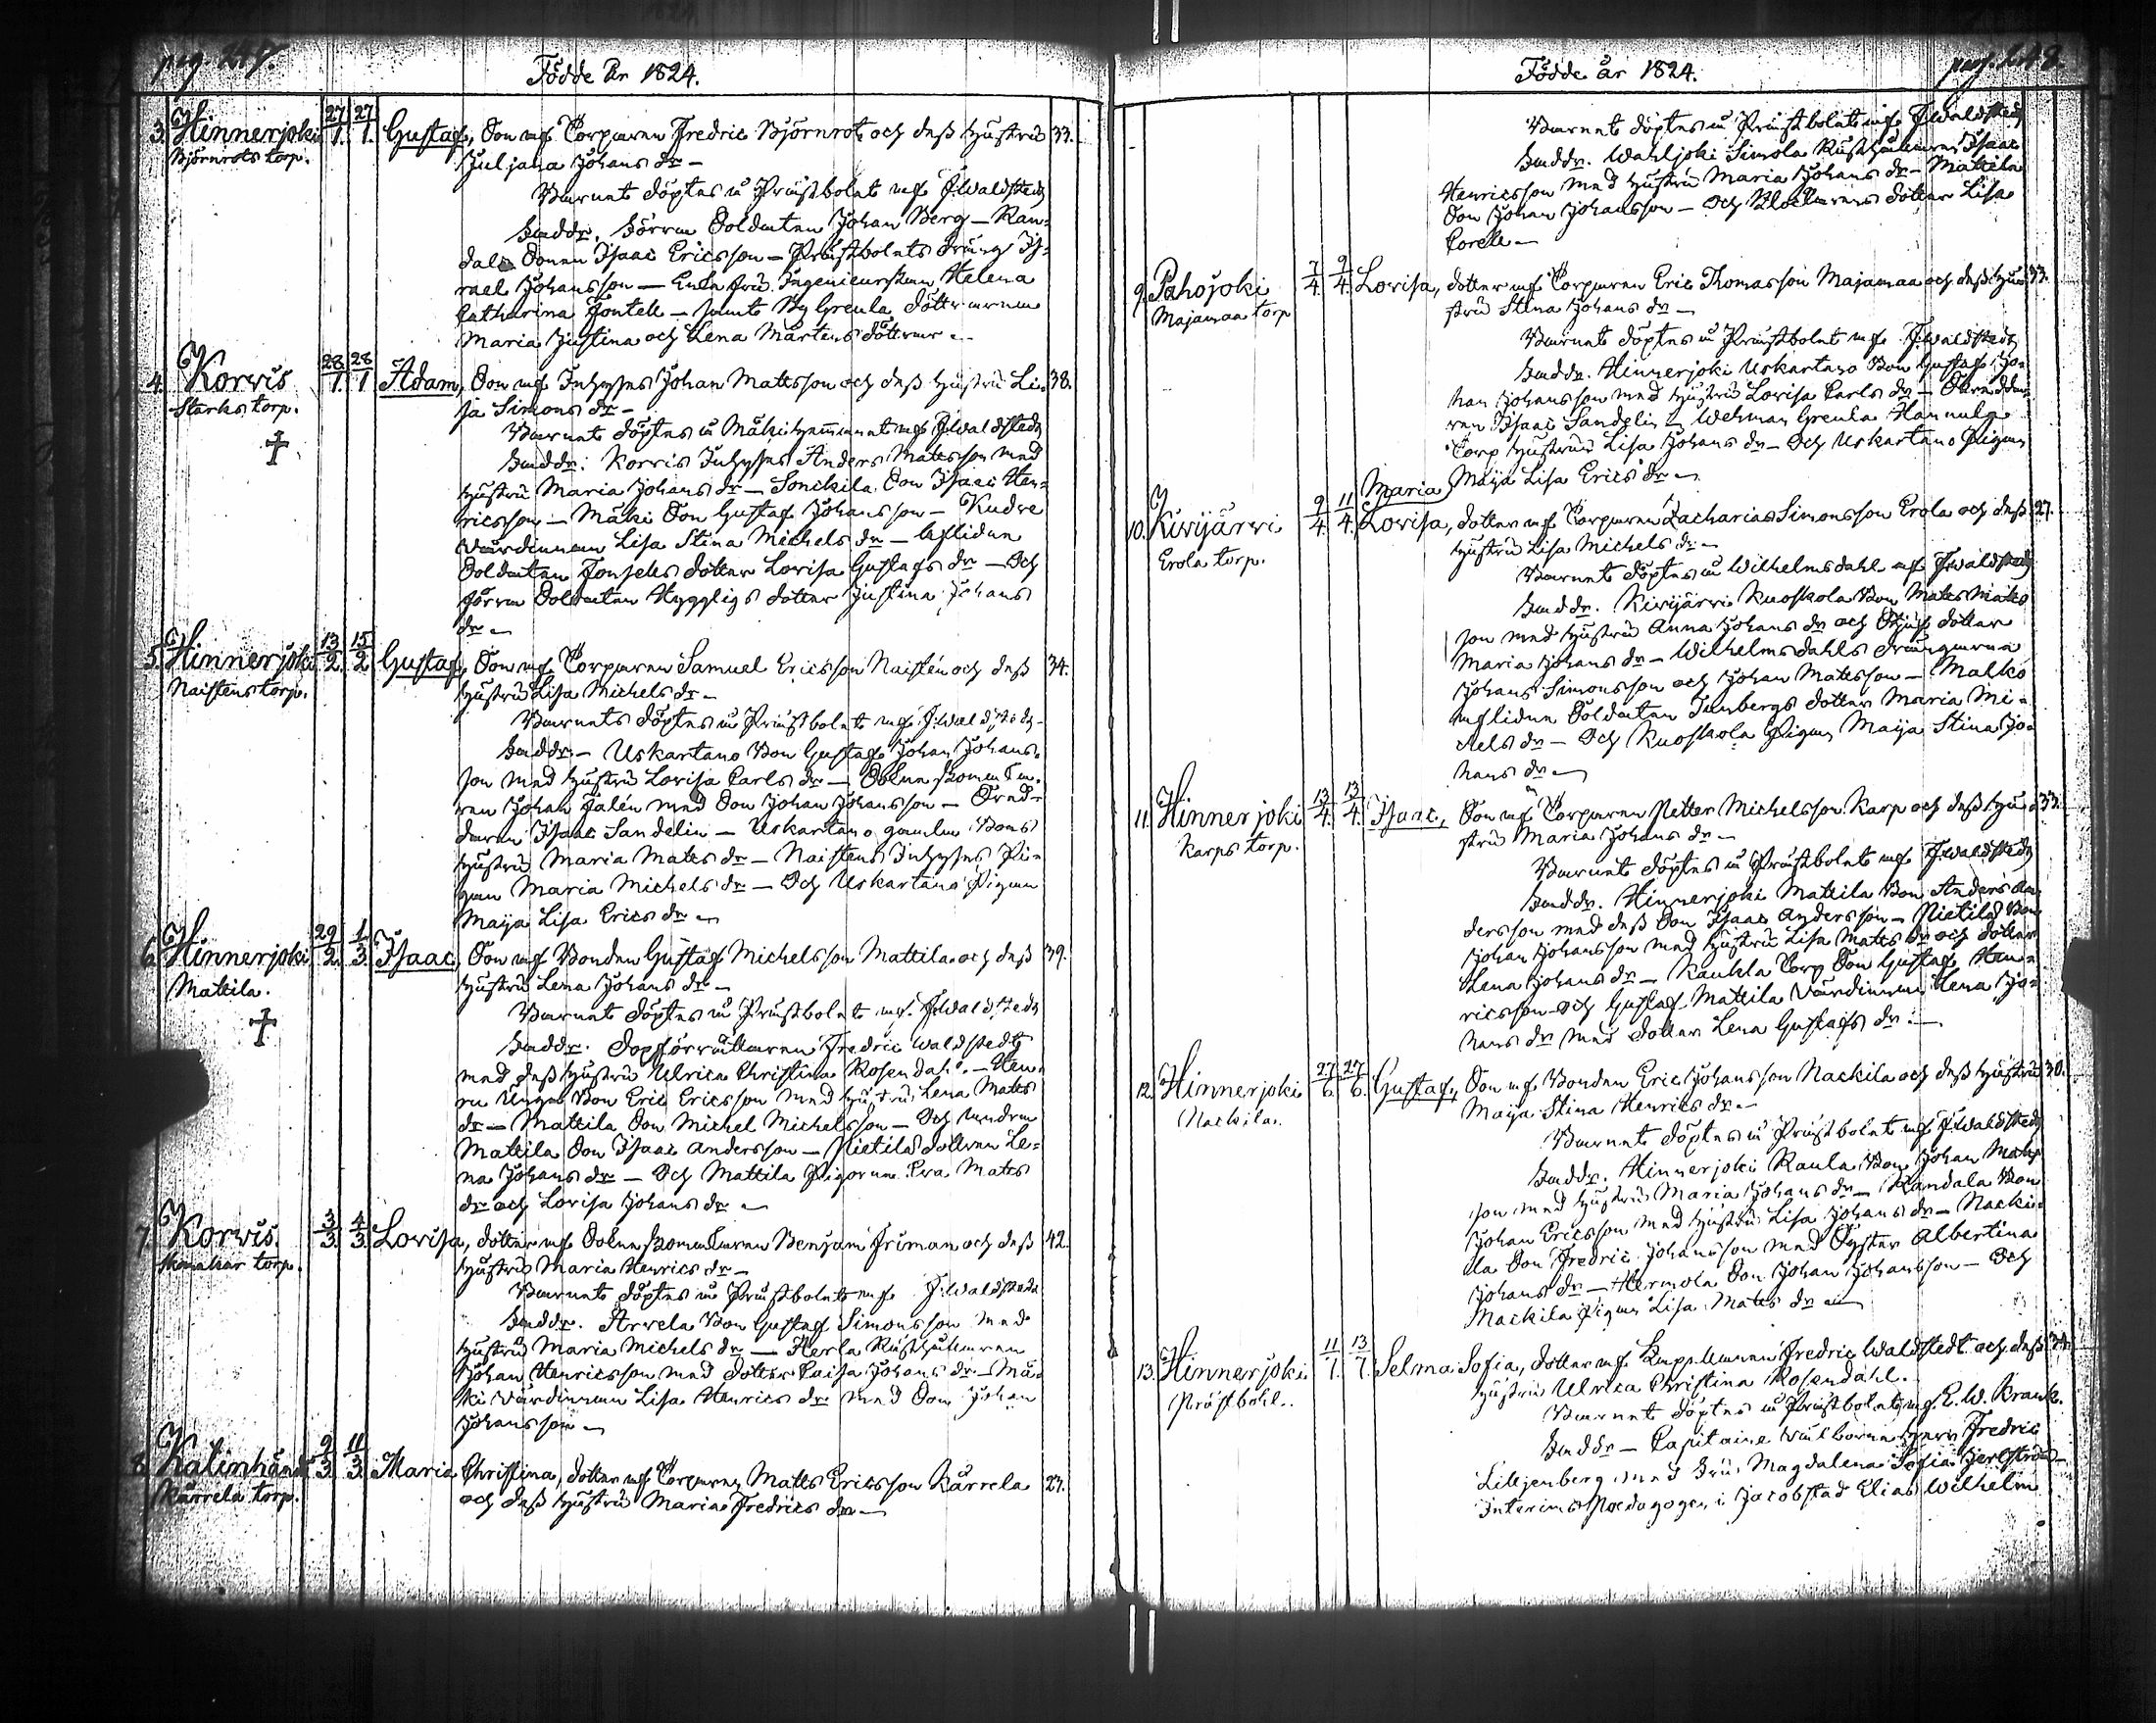 pag 247.
Födde År 1824.
3. Hinnerjoki 27/1. 27/1. Gustaf, Son af Torparen Fredric Björnrot och dess Hustru 33.
Björnrots torp. Juljana Johans dr –
Barnet döptes i Prästbolet af F. Waldstedt
Faddr. Förra Soldaten Johan Berg – Ran-
dala Sonen Isaac Ericsson – Prästbolets Dräng Is-
rael Johansson – Enke fru Ingenieurskan Helena
Catharina Fontell – samt By Greula döttrarne
Maria Justina och Lena Mårtens döttrar –
4. Korvis 28/1. 28/1 Adam, Son af Inhyses Johan Matsson och dess Hustru Li- 38.
Starks torp. sa Simons dr –
Barnet döptes i Mäki Hemmanet af F. Waldstedt
✝
Faddr: Korvis Inhyses Anders Matsson med
Hustru Maria Johans dr – Sonckila Son Isaac Hen-
ricsson – Mäki Son Gustaf Johansson – Kudre
Värdinnan Lisa Stina Michels dr – Aflidne
Soldaten Fonsells dotter Lovisa Gustafs dr – Och
förra Soldaten Hyggligs dotter Justina Johans
dr –
5. Hinnerjoki 13/2. 15/2 Gustaf, Son af Torparen Samuel Ericsson Naisten och dess 34.
Naistens torp. Hustru Lisa Michels dr –
Barnets döptes i Prästbolet af F. Waldstedt
Faddr. – Uskartano Bon Gustaf Johan Johans-
son med Hustru Lovisa Carls dr –
ren Johan Salén med Son Johan Johansson –
daren Isaac Sandelin – Uskartano gamla Bons
Hustru Maria Mats dr – Naistens Inhyses Pi-
gan Maria Michels dr – Och Uskartano Pigan
Maija Lisa Erics dr –
6. Hinnerjoki 29/2. 1/3. Isaac, Son af Bonden Gustaf Michelsson Mattila och dess 39.
Mattila. Hustru Lena Johans dr –
✝
Barnet döptes i Prästbolet af F. Waldstedt
Faddr. Dopförrättaren Fredric Waldstedt
med dess Hustru Ulrica Christina Rosendahl. – Hen-
Unga Bon Eric Ericsson med Hustru Lena Mats
dr – Mattila Son Michel Michelsson – Och andra
Mattila Son Isaac Andersson – Nietilä dottren Le-
na Johans dr – Och Mattila Pigorna Eva Mats
dr och Lovisa Johans dr –
7. Korvis. 3/3. 4/3. Lovisa, dotter af Benjam Friman och dess 42.
torp. Hustru Maria Henrics dr –
Barnet döptes i Prästbolet af F. Waldstedt
Faddr. Arvela Bon Gustaf Simonsson med
Hustru Maria Michels dr – Herla Rusthållaren
Johan Henricsson med dotter Caisa Johans dr – Mä-
ki Värdinnan Lisa Henrics dr med Son Johan
Johansson –
8. 9/3. 11/3. Maria Christina, dotter af Torparen Matts Ericsson Kärrela 23.
Kärrela torp. och dess Hustru Maria Fredrics dr –
Födde år 1824. pag. 248.
Barnet döptes i Prästbolet af F. Waldstedt
Faddr. Wahljoki Simola Rusthållaren Isaac
Henricsson med Hustru Maria Johans dr – Mattila
Son Johan Johansson – Och Klockarens dotter Lisa
Corell –
9. Pahojoki 7/4. 9/4. Lovisa, dotter af Torparen Eric Thomasson Majamaa och dess Hu- 33.
Majamaa torp stru Stina Johans dr –
Barnet döptes i Prästbolet af F. Waldstedt
Faddr. Hinnerjoki Uskartano Bon Gustaf Jo-
han Johansson med Hustru Lovisa Carls dr –
ren Isaac Sandelin – Wehman Greula Hannula
Torp Hustrun Lisa Johans dr – Och Uskartano Pigan
Maija Lisa Erics dr –
Maria
10. Kivijärvi 9/4. 11/4. Lovisa, dotter af Torparen Zacharias Simonsson Erola och dess 27.
Erola torp. Hustru Lisa Michels dr –
Barnet döptes i Wilhelmsdahl af F. Waldstedt
Faddr. Kivijärvi Kuoskola Bon Mats Mats
son med Hustru Anna Johans dr och dotter
Maria Johans dr – Wilhelmsdahls Drängarna
Johan Simonsson och Johan Matsson – Malko
aflidne Soldaten dotter Maria Mi-
chels dr – Och Kuoskola Pigan Maija Stina Jo-
hans dr –
11. Hinnerjoki 13/4. 13/4. Isaac, Son af Torparen Petter Michelsson Karp och dess Hu- 33.
Karps torp. stru Maria Johans dr –
Barnet döptes i Prästbolet af F. Waldstedt
Faddr. Hinnerjoki Mattila Bon Anders An-
dersson med dess Son Isaac Andersson – Nietilä Bon
Johan Johansson med Hustru Lisa Mats dr och dotter
Lena Johans dr – Kaukla Torp Son Gustaf Hen-
ricsson – Och Gustaf Mattila Värdinnan Lena Jo-
hans dr med dotter Lena Gustafs dr –
12. Hinnerjoki 27/6. 27/6. Gustaf, Son af Bonden Eric Johansson Nackila och dess Hustru 30.
Nackila. Maija Stina Henrics dr –
Barnet döptes i Prästbolet af F. Waldstedt
Faddr. Hinnerjoki Raula Bon Johan Mats
son med Hustru Maria Johans dr – Randala Bon
Johan Ericsson med Hustru Lisa Johans dr – Nacki-
la Son Fredric Johansson med Syster Albertina
Johans dr – Hermola Son Johan Johansson – Och
Nackila Pigan Lisa Mats dr –
13. Hinnerjoki 11/7. 13/7. Selma Sofia, dotter af Kapellanen Fredric Waldstedt och dess 34.
Prästbohl. Hustru Ulrica Christina Rosendahl.
Barnet döptes i Prästbolet af E. W. Krank.
Faddr – Capitaine Wälborne Herr Fredric
Lilljenberg med Fru Magdalena Sofia –
Interims Pædagogen i Jacobstad Elias Wilhelm